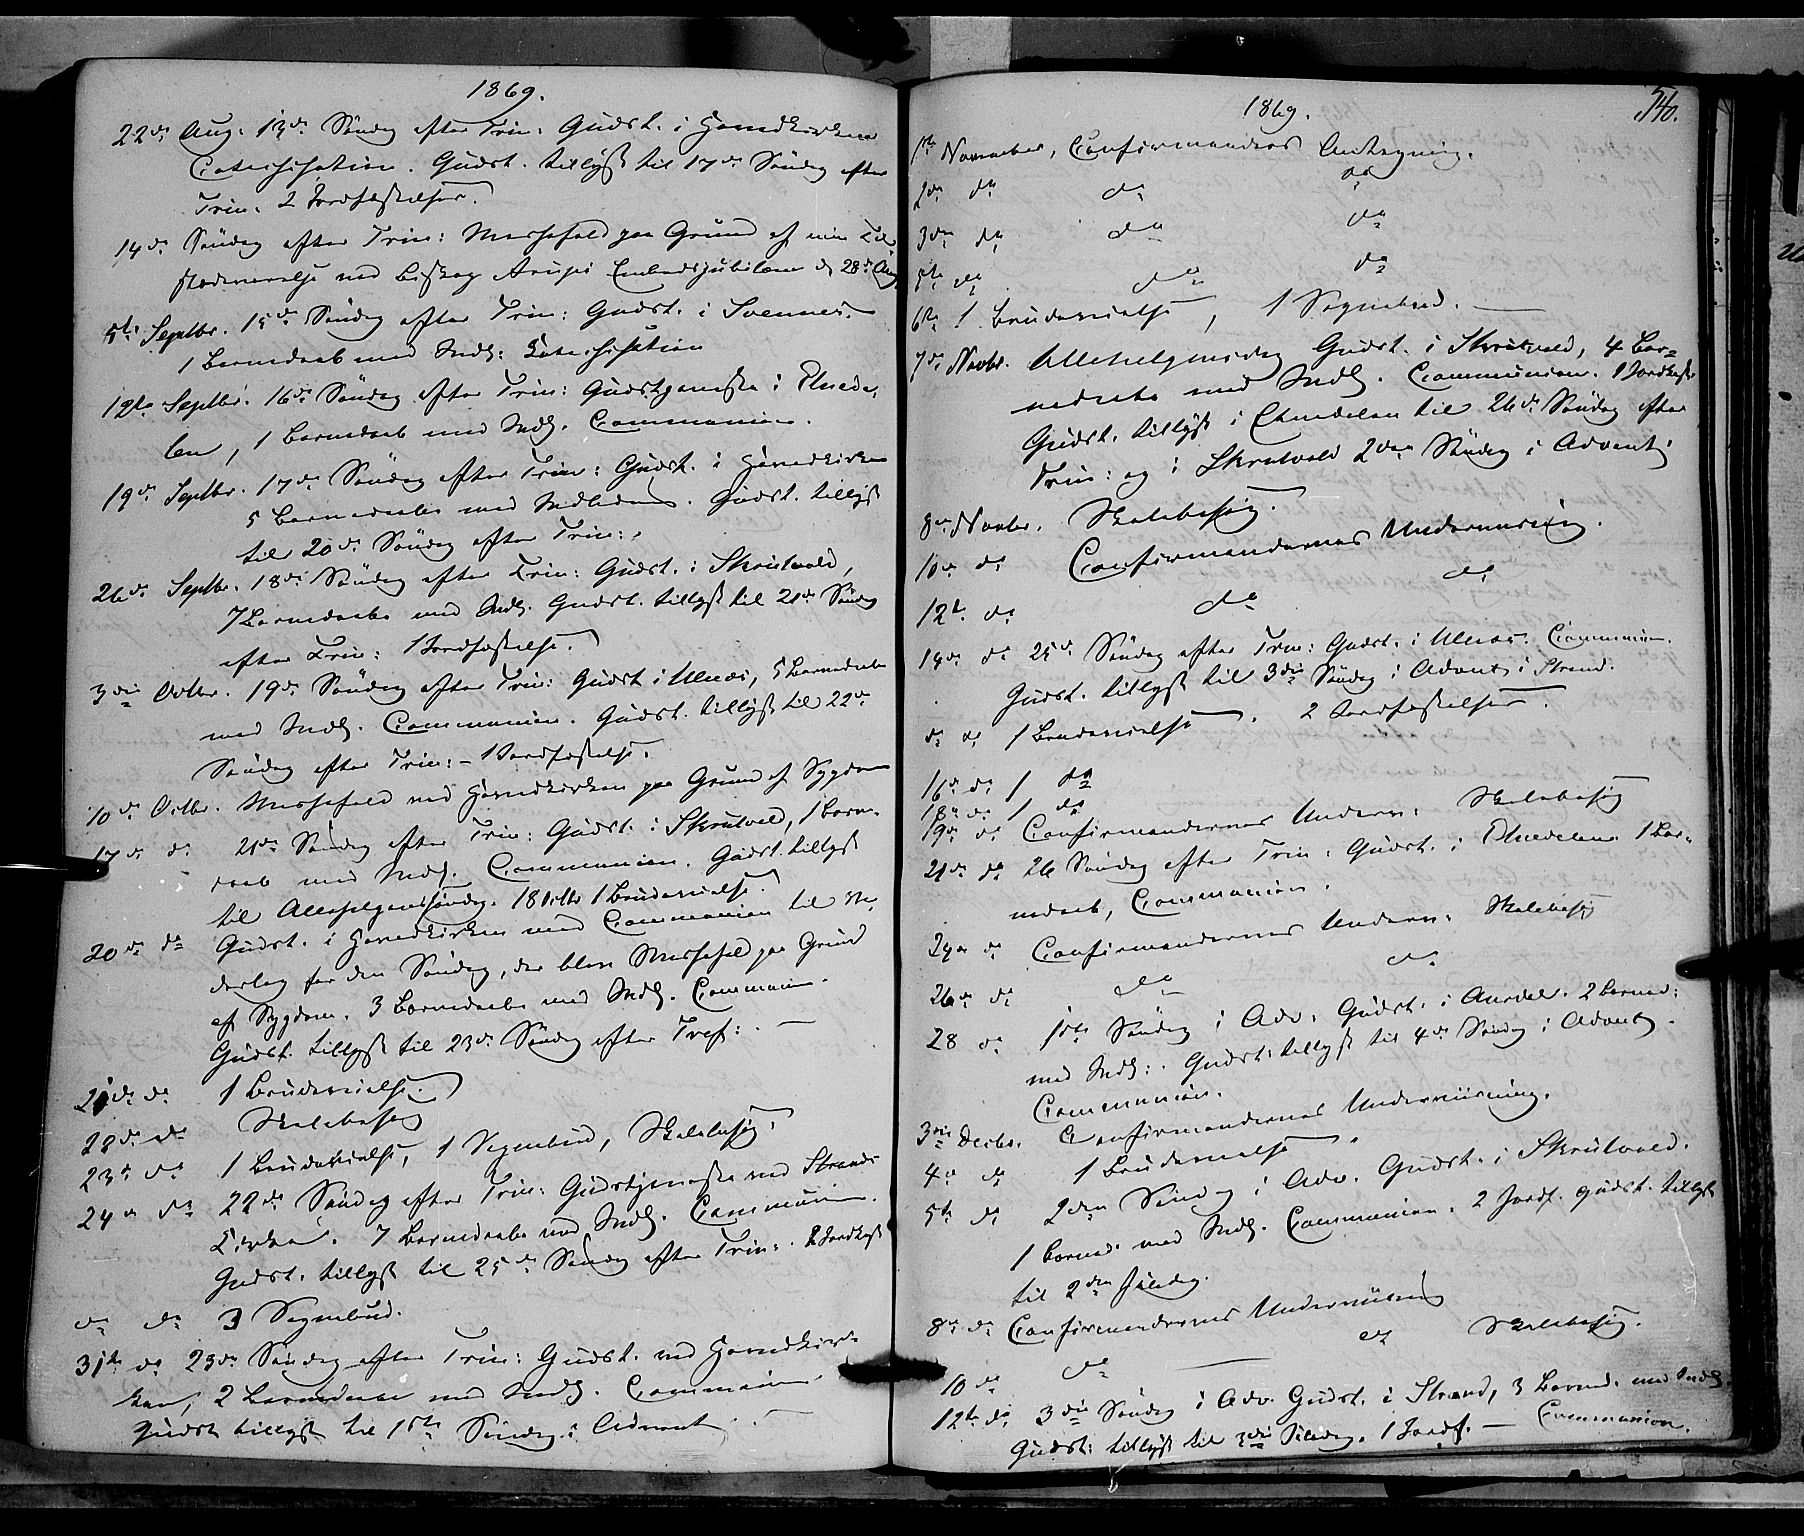 1869.
22de Aug. 13de Søndag efter Trin: Gudst. i Hovedkirken
Catechisation. Gudst. tillyst til 17de Søndag efter
Trin. 2 Jordfæstelser.
14de Søndag efter Trin: Messefald paa Grund af min Til
stedeværelse ved Biskop Arups Embedsjubilæum d. 28de Aug
5te Septbr. 15de Søndag efter Trin: Gudst. i Svennes.
1 Barnedaab med Indl: Katechisation
12te Septbr. 16de Søndag efter Trin: Gudstjeneste i Etneda-
len, 1 Barnedaab med Indl. Communion.
19de Septbr. 17de Søndag efter Trin: Gudst. i Hovedkirken
5 Barnedaabe med Indledn. Gudst. tillyst
til 20de Søndag efter Trin:
26de Septbr. 18de Søndag efter Trin: Gudst. i Skrutvold,
7 Barnedaabe med Indl. Gudst. tillyst til 21de Søndag
efter Trin: 1 Jordfæstelse.
3die Octbr. 19de Søndag efter Trin: Gudst i Ulnæs, 5 Barnedaabe
med Indl. Communion. Gudst. tillyst til 22de
Søndag efter Trin: - 1 Jordfæstelse.
10de Octbr. Messefald ved Hovedkirken paa Grund af Sygdom
17de do 21de Søndag efter Trin: Gudst. i Skrutvold, 1 Barne-
daab med Indl. Communion. Gudst. tillyst
til Allehelgenssøndag. 18 Octbr 1 Brudevielse.
20de do Gudst. i Hovedkirken med Communion til
for den Søndag, der blev Messefald paa Grund
af Sygdom. 3 Barnedaabe med Indl. Communion.
Gudst. tillyst til 23de Søndag efter Tref: . —
21de do 1 Brudevielse.
22de do Skolebesøg
23de do 1 Brudevielse, 1 Sognebud, Skolebesøg.
24de do 22de Søndag efter Trin: Gudstjeneste ved Strands
Kirke. 7 Barnedaabe med Indl. Communion.
Gudst. tillyst til 25de Søndag efter Trin: . 2 Jordfæst
do do 3 Sognebud.
31te do 23de Søndag efter Trin: Gudst. ved Hovedkir-
ken, 2 Barnedaabe med Indl. Communion.
Gudst tillyst til 1ste Søndag i Advent . —
540.
1869.
1ste November, Confirmanders Antegning.
2de do do do
3die do do do
5te do do do
6te 1 Brudevielse, 1 Sognebud. —
7de Novbr. Allehelgensdag Gudst. i Skrutvold, 4 Bar-
nedaabe med Indl. Communion. 1 Jordfæst
Gudst. tillyst i Etnedalen til 26de Søndag efter
Trin: og i Skrutvold 2den Søndag i Advent
8de Novbr. Skolebesøg.
10de do Confirmandernes Underviisning.
12te do do do
14de do 25de Søndag efter Trin: Gudst. i Ulnæs. Communion.
Gudst. tillyst til 3die Søndag i Advent i Strand.
do do 1 Brudevielse. 2 Jordfæstelser.
16de do 1 do
18de do 1 do
19de do Confirmandernes Underv: Skolebesøg
21de do 26 Søndag efter Trin: Gudst. i Etnedalen 1 Bar-
nedaab, Communion.
24de do Confirmandernes Underv: Skolebesøg
26de do do do
28 do 1ste Søndag i Adv. Gudst. i Aurdal. 2 Barned:
med Indl: . Gudst: tillyst til 4de Søndag i Advent.
Communion.
3die Decbr. Confirmandernes Underviisning.
4de do 1 Brudevielse.
5te do 2den Søndag i Adv. Gudst. i Skrutvold.
1 Barned. med Indl. Communion. 2 Jordf. gudst. tillyst
til 2den Juledag.
8de do Confirmandernes Underviisning
10 do do do Skolebesøg.
12te do 3die Søndag i Adv. Gudst. i Strand, 3 Barned. med Indl.
Gudst: tillyst til 3die Juledag. 1 Jordf. — Communion.